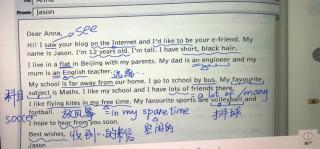 From: Jason
Dear Anna, →see
Hi! I saw your blog on the Internet and I'd like to be your e-friend. My
name is Jason. I'm 12 years old. I'm tall. I have short, black hair.
I live in a flat in Beijing with my parents. My dad is an engineer and my
mum is an English teacher.
My school is far away from our home. I go to school by bus. My favourite
科目 subject is Maths. I like my school and I have lots of friends there.
= a lot of / many
I like flying kites in my free time. My favourite sports are volleyball and
soccer football. 放风筝 = in my spare time 排球
I hope to hear from you soon. 空闲的
Best wishes, 收到…的来信
Jason